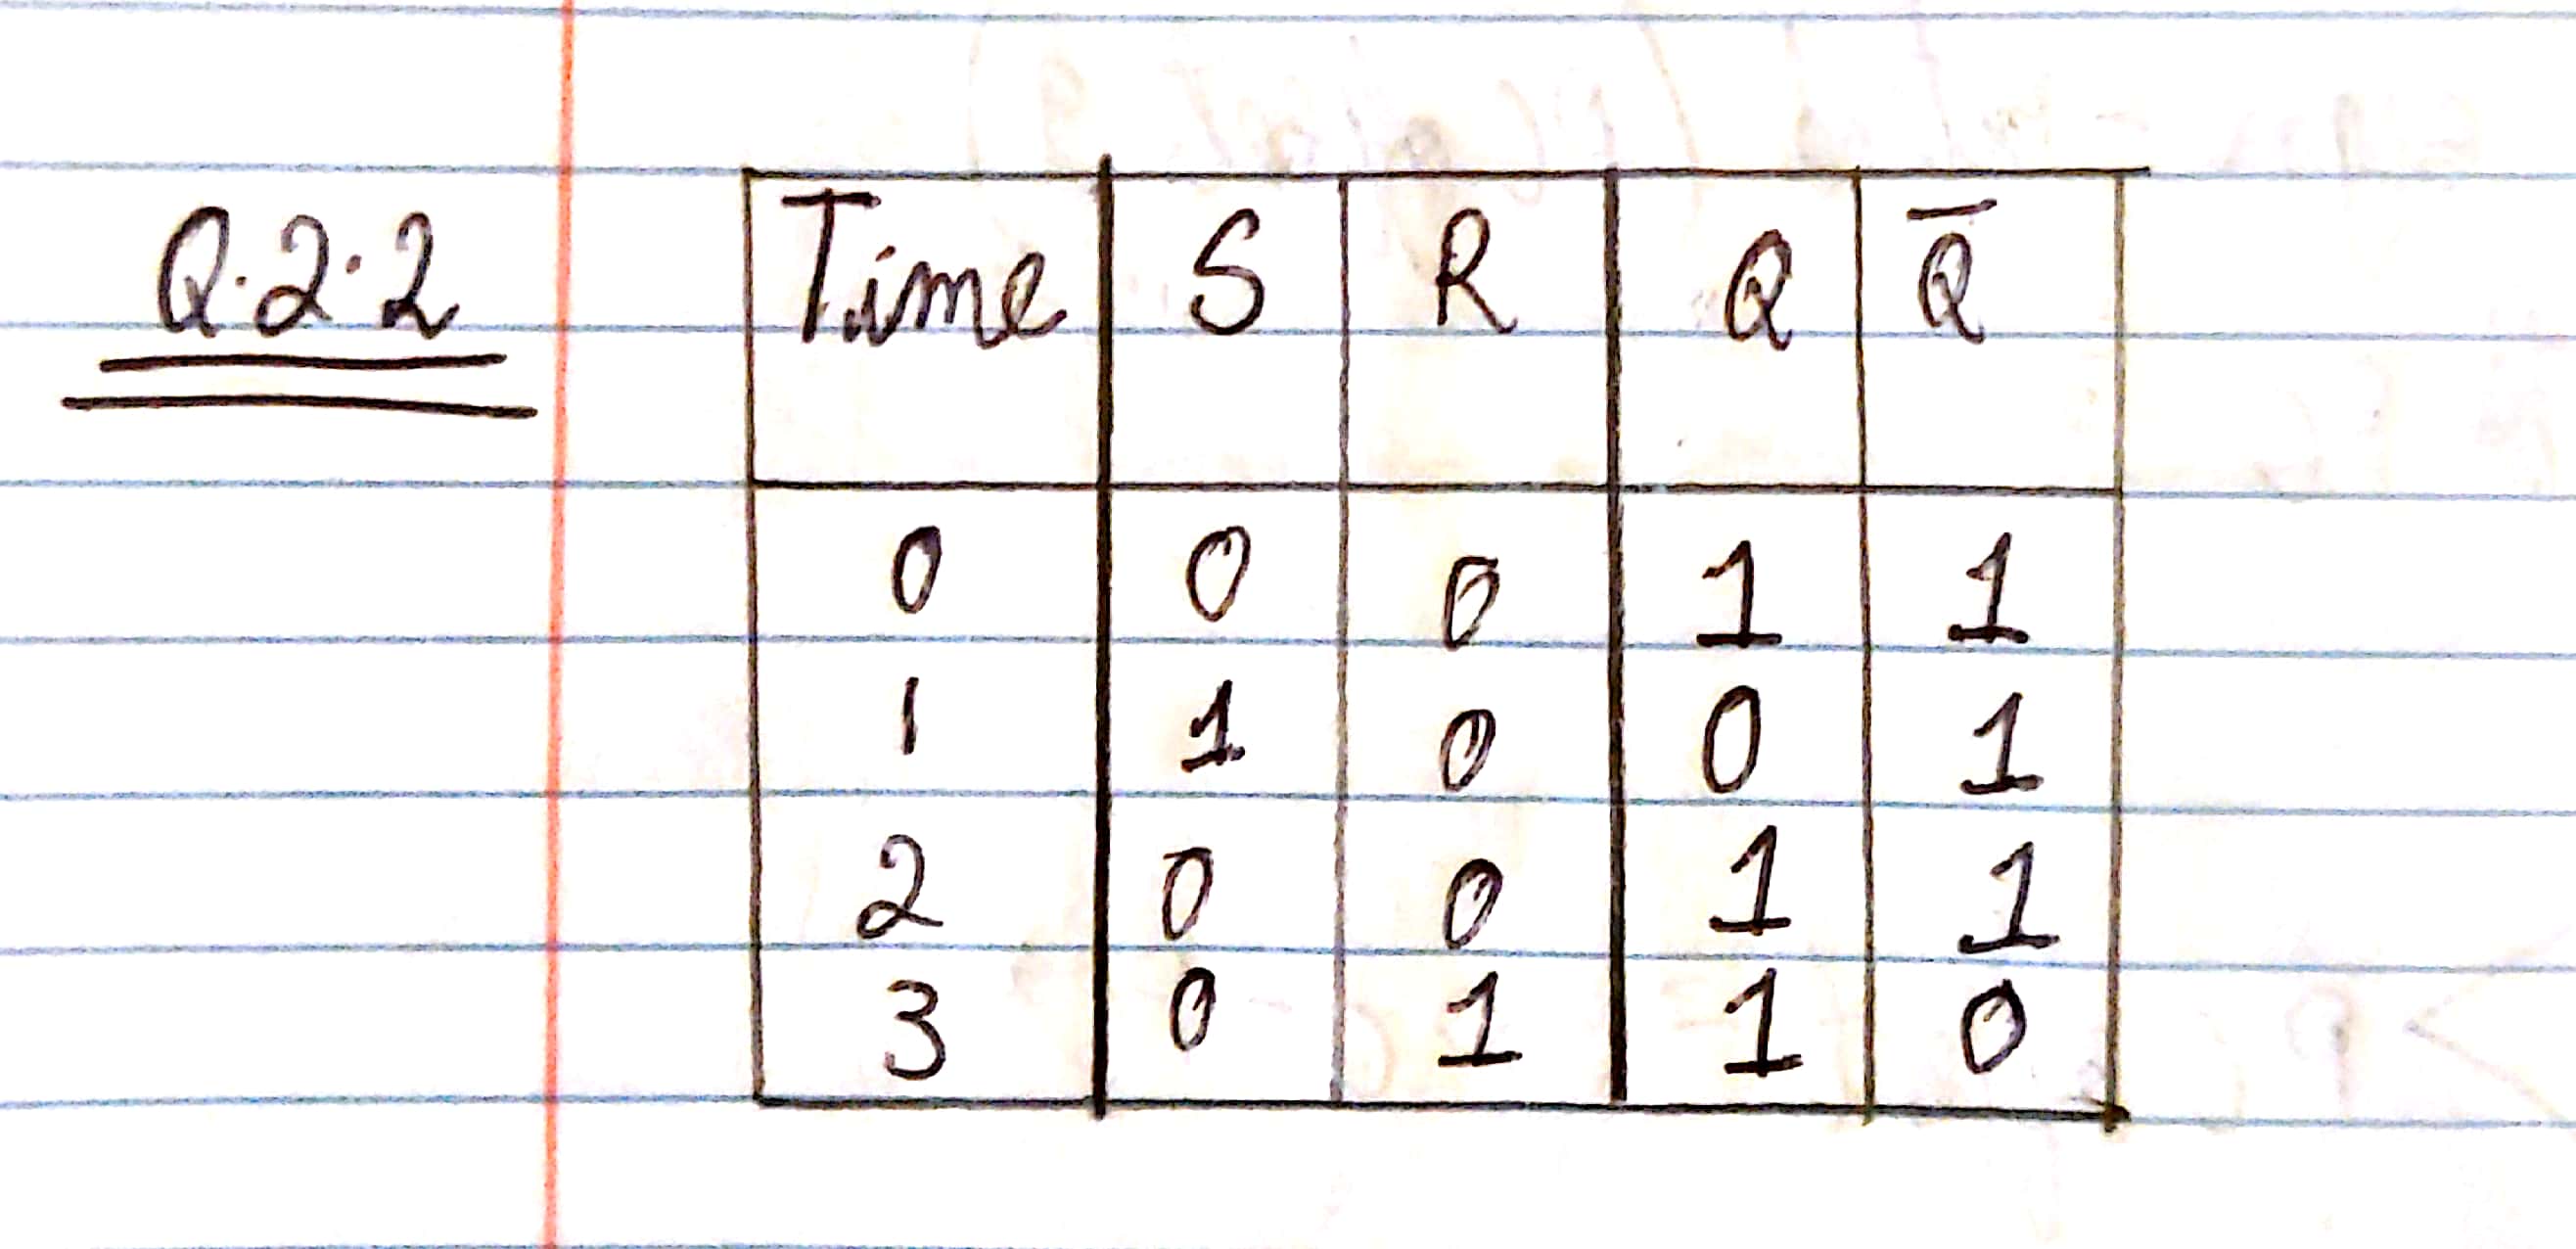 Q.2.2
Time S R Q Q̅
0 0 0 1 1
1 1 0 0 1
2 0 0 1 1
3 0 1 1 0